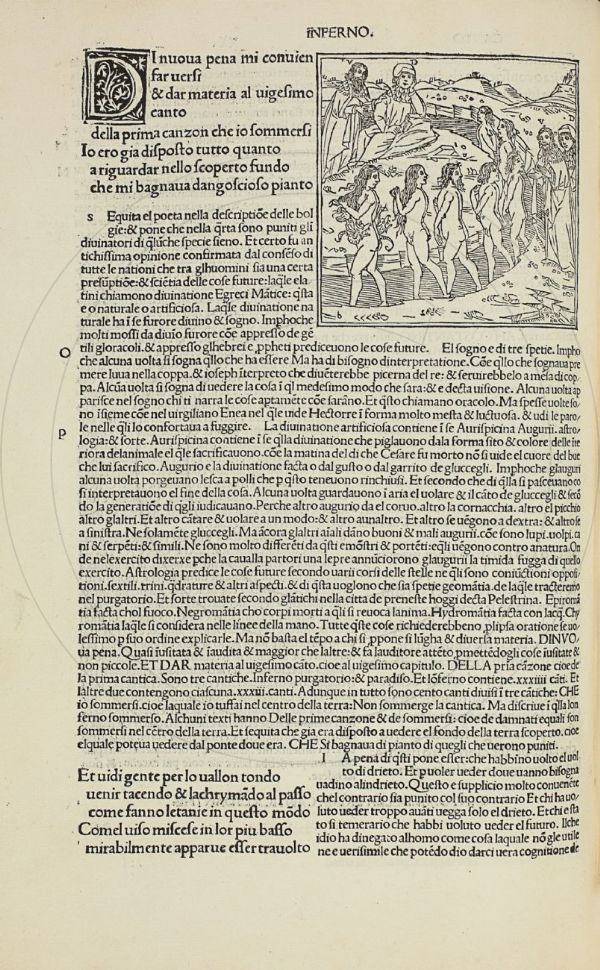 INFERNO.
DI nuoua pena mi conuien
far uersi
& dar materia al uigesimo
canto
della prima canzon che io sommersi
Io ero gia disposto tutto quanto
a riguardar nello scoperto fundo
che mi bagnaua dangoscioso pianto
s Equita el poeta nella descriptiõe delle bol
gie:& pone che nella q̃rta sono puniti gli
diuinatori di q̃lũche specie sieno. Et certo fu an
tichissima opinione confirmata dal confẽso di
tutte le nationi che tra glhuomini sia una certa
presũptiõe:& sciẽtia delle cose future: laq̃le ela
tini chiamono diuinatione Egreci Mãtice: q̃sta
e o naturale o artificiosa. Laq̃le diuinatione na
turale ha ĩ se furore diuino & sogno. Imphoche
molti mossi da diuĩo furore cõe appresso de gẽ
tili gloracoli. & appresso glhebrei e ꝓpheti prediceuono le cose future. El sogno e di tre spetie. Impho
O
che alcuna uolta si sogna q̃llo che ha essere Ma ha di bisogno dinterpretatione. Cõe q̃llo che sognaua pre
mere luua nella coppa. & ioseph ĩterpreto che diuẽterebbe picerna del re: & seruirebbelo a mẽsa di cop
pa. Alcũa uolta si sogna di uedere la cosa ĩ q̃l medesimo modo che sara: & e decta uisione. Alcuna uolta ap
parisce nel sogno chi ti narra le cose aptamẽte cõe sarãno. Et q̃sto chiamano oraculo. Ma spesse uolte so
no ĩsieme cõe nel uirgiliano Enea nel q̃le uide Hectorre ĩ forma molto mesta & luctuosa. & udi le paro
le nelle q̃li lo confortaua a fuggire. La diuinatione artificiosa contiene ĩ se Aurispicina Augurii. astro
P
logia: & sorte. Aurispicina contiene ĩ se q̃lla diuinatione che piglauono dala forma sito & colore delle ĩte
riora delanimale el q̃le sacrificauono. cõe la matina del di che Cesare fu morto nõ si uide el cuore del bue
che lui sacrifico. Augurio e la diuinatione facta o dal gusto o dal garrito de gluccegli. Imphoche glauguri
alcuna uolta porgeuano lesca a polli che p q̃sto teneuono rinchiusi. Et secondo che di q̃lla si pasceuano co
si interpretauono el fine della cosa. Alcuna uolta guardauono ĩ aria el uolare & il cãto de gluccegli & secõ
do la generatiõe di q̃gli iudicauano. Perche altro augurio da el coruo. altro la cornacchia. altro el picchio
altro glaltri. Et altro cãtare & uolare a un modo: & altro aunaltro. Et altro se uẽgono a dextra: & altro se
a sinistra. Ne solamẽte gluccegli. Ma ãcora glaltri aĩali dãno buoni & mali augurii. cõe sono lupi. uolpi. ca
ni & serpẽti: & simili. Ne sono molto differẽti da q̃sti emõstri & portẽti: eq̃li uẽgono contro anatura. On
de nel exercito dixerxe pche la caualla partori una lepre annũciorono glauguri la timida fugga di quello
exercito. Astrologia predice le cose future secondo uarii corsi delle stelle ne q̃li sono coniũctiõi oppositi
tioni. sextili. trini. q̃drature & altri aspecti. & di q̃sta uoglono che sia spetie geomãtia. de laq̃le tracteremo
nel purgatorio. Et forte trouate secondo glãtichi nella citta de preneste hoggi decta Pelestrina. Epiromã
tia facta chol fuoco. Negromãtia cho corpi morti a q̃li si reuoca lanima. Hydromãtia facta con lacq̃. Chy
romãtia laq̃le si considera nelle linee della mano. Tutte q̃ste cose richiederebbeno ꝓlipsa oratione se uo
lessimo p suo ordine explicarle. Ma nõ basta el tẽpo a chi si ꝓpone si lũgha & diuersa materia. DINVO
ua pena. Quasi ĩusitata & ĩaudita & maggior che laltre: & fa lauditore attẽto ꝓmettẽdogli cose ĩusitate &
non piccole. ET DAR materia al uigesimo cãto. cioe al uigesimo capitulo. DELLA pria cãzone cioe de
la prima cantica. Sono tre cantiche. Inferno purgatorio: & paradiso. Et lõferno contiene. xxxiiii cãti. Et
laltre due contengono ciascuna. xxxiii. canti. Adunque in tutto sono cento canti diuisi ĩ tre cãtiche: CHE
io sommersi. cioe laquale io tuffai nel centro della terra: Non sommerge la cantica. Ma discriue ĩ q̃lla lon
ferno sommerso. Alchuni texti hanno Delle prime canzone & de sommersi: cioe de damnati equali son
sommersi nel cẽtro della terra. Et sequita che gia era disposto a uedere el fondo della terra scoperto. cioe
elquale poteua uedere dal ponte doue era. CHE Si bagnaua di pianto di quegli che uerono puniti.
Et uidi gente per lo uallon tondo
uenir tacendo & lachrymãdo al passo
come fanno letanie in questo mõdo
Comel uiso miscese in lor piu basso
mirabilmente apparue esser trauolto
l A pena di q̃sti pone esser: che habbĩno uolto el uol
to di drieto. Et p uoler ueder doue uanno bisogna
uadino alindrieto. Questo e supplicio molto conuenẽte
chel contrario sia punito col suo contrario Et chi ha uo
luto ueder troppo auãti uegga solo el drieto. Et chi e sta
to si temerario che habbi uoluto ueder el futuro. Ilche
idio ha dinegato alhomo come cosa laquale nõ gle utile
ne e uerisimile che potẽdo dio darci uera cognitione de